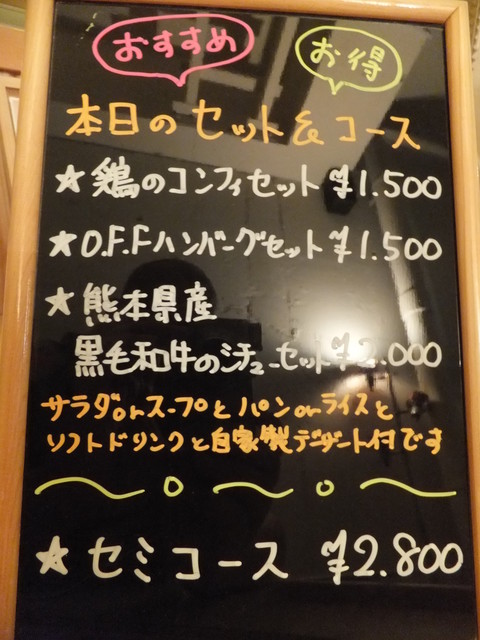 おすすめ
お得
本日のセット&コース
★鶏のコンフィセット ¥1.500
★O.F.Fハンバーグセット ¥1.500
★熊本県産
黒毛和牛のシチューセット ¥2.000
サラダorスープとパンorライスと
ソフトドリンクと自家製デザート付です
★セミコース ¥2.800